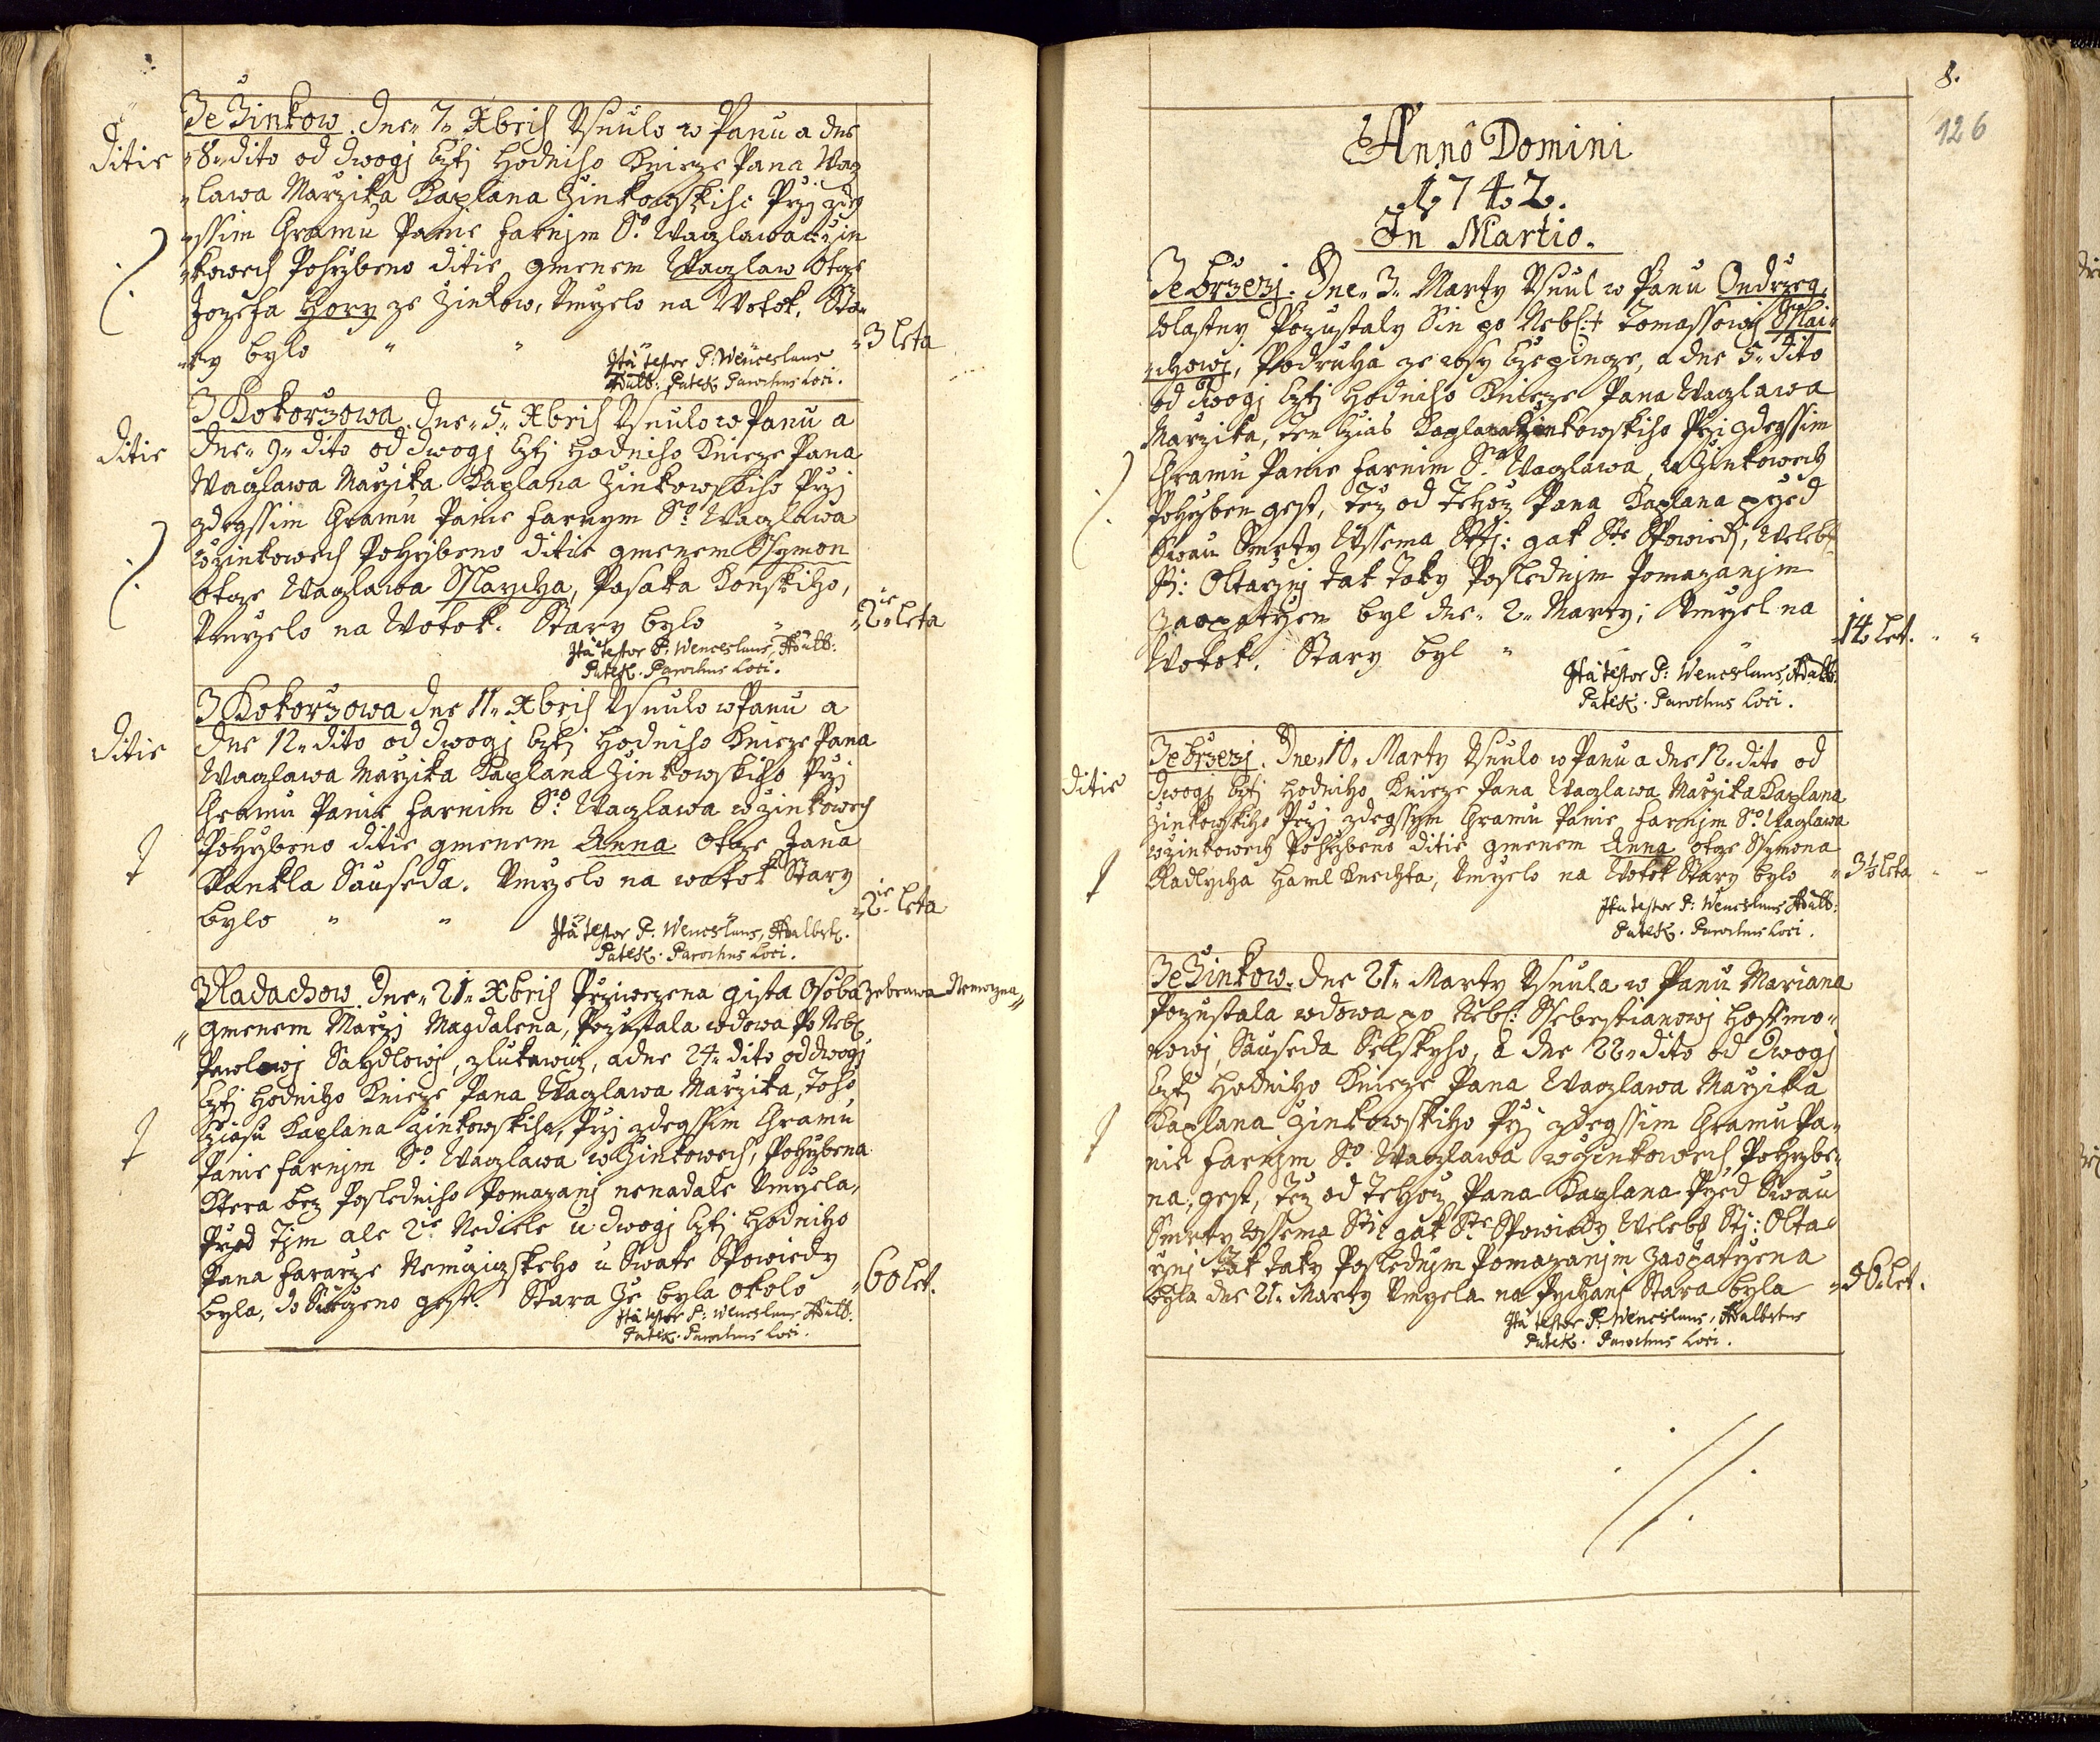 Ze Žinkow. Dne „ 7 „ Xbris Usnulo w Panu a dne
Ditie
„ 8 „ dito od dwogj Cztj hodniho Knieze Pana Wacz
„lawa Marzika Kaplana Žinkowskiho Przj zdeg
„ssim Chramu Panie farnjm So. Waczlawa w žin
„kowech Pohrzbeno ditie gmenem Waczlaw Otcze
Jozefa Hory ze Žinkow, Vmrzelo na Wotok. Sta„
„ry bylo „ „ „ 3 leta
Ita testor P: Wenceslaus
Adalb: Patek Parochus Loci.
Z Kokorzowa. Dne „ 5 „ Xbris Usnulo w Panu a
Ditie
Dne „ 9 „ dito od dwogj Cztj hodniho Knieze Pana
Waczlawa Marzika Kaplana Žinkowskiho Przj
zdegssim Chramu Panie farnym So. Waczlawa
w žinkowech Pohrzbeno ditie gmenem Ssymon
Otcze Waczlawa Pasaka Konskiho,
Vmrzelo na Wotok. Stary bylo „ „ 2ie leta
Ita testor P: Wenceslaus, Adalb:
Patek. Parochus Loci.
Z Kokorzowa dne 11 „ Xbris Usnulo w Panu a
Ditie
dne 12 „ dito od dwogj Cztj hodniho Knieze Pana
Waczlawa Marzika Kaplana Žinkowskiho Przj
Chramu Panie farnim So. Waczlawa w žinkowech
Pohrzbeno ditie gmenem Anna Otcze Jana
Kankla Sauseda. Vmrzelo na wotok Stary
bylo „ „ „ 2ie leta
Ita testor P. Wenceslaus, Adalbert.
Patek. Parochus Loci.
Z Radachow. Dne „ 21 „ Xbris Prziwezena gista Osoba zebrawa Nemozna „
„ gmenem Marzj Magdalena, Pozustala wdowa Po Nebl.
Pawlowj z lukawicz, a dne 24 „ dito od dwogj
Cztj hodniho Knieze Pana Waczlawa Marzika, Toho
Cziasu Kaplana žinkowskiho, Przj zdegssim Chramu
Panie farnjm So. Waczlawa w Žinkowech, Pohrzbena
Ktera bez Posledniho Pomazanj nenadale Vmrzela,
Przed Tjm ale 2ie Nediele u dwogj Cztj hodniho
Pana fararze u Swate Spowiedy
byla, do gest. Stara Je byla okolo „ 60 let.
Ita testor P: Wenceslaus Adalb:
Patek. Parochus Loci.
8.
126
Anno Domini
1742.
In Martio.
Ze brzezj. Dne „ 3 „ Marty Usnul w Panu Ondrzeg,
wlastny Pozustaly Sin po Nebl: Tomassowi Sslai„
„chowj, Podruha ze wsy Czepincze, a dne 5 „ dito
od dwogj Cztj hodniho Knieze Pana Waczlawa
Marzika, ten Czias Kaplana Žinkowskiho Przj zdegssim
Chramu Panie farnim So. Waczlawa, w Žinkowech
Pohrzben gest, Tez od Tehoz Pana Kaplana przed
Swau Smrty Wssema Sttj: gak Ste Spowiedj, Weleb:
Stj: Oltarznj tak Taky Poslednjm Pomazanjm
Zaopatrzen byl dne „ 2 „ Marty; Vmrzel na
Wotok. Stary byl „ „ „ 14 let. „ „
Ita testor P: Wenceslaus, Adalb:
Patek. Parochus Loci.
Ze brzezj. Dne „ 10 „ Marty Usnulo w Panu a dne 12 „ dito od
Ditie
dwogj Cztj hodniho Knieze Pana Waczlawa Marzika Kaplana
Žinkowskiho Przj zdegssym Chramu Panie farnjm So. Waczlawa
w žinkowech Pohrzbeno ditie gmenem Anna otcze Ssymona
Radlycha Haml Knechta, Vmrzelo na Wotok Stary bylo „ 3½ leta
Ita testor P: Wenceslaus Adalb:
Patek. Parochus Loci.
Ze Žinkow. Dne 21 „ Marty Usnula w Panu Mariana
Pozustala wdowa po Nebl: Ssebestianowj Hossmo„
nowj, Sauseda Selskyho, a dne 22 „ dito od Dwogj
Cztj hodniho Knieze Pana Waczlawa Marzika
Kaplana Žinkowskiho Przj zdegssim Chramu Pa„
nie farnjm So. Waczlawa w Žinkowech, Pohrzbe„
na, gest, Tez od Tehoz Pana Kaplana Przed Swau
Smrty wssema Stj: gak Ste Spowiedy Weleb: Stj: Olta„
rznj Tak taky Poslednjm Pomazanjm Zaopatrzena
byla dne 21 „ Marty Vmrzela na Pychani Stara byla „ 36 let.
Ita testor P. Wenceslaus, Adalbertus
Patek. Parochus Loci.